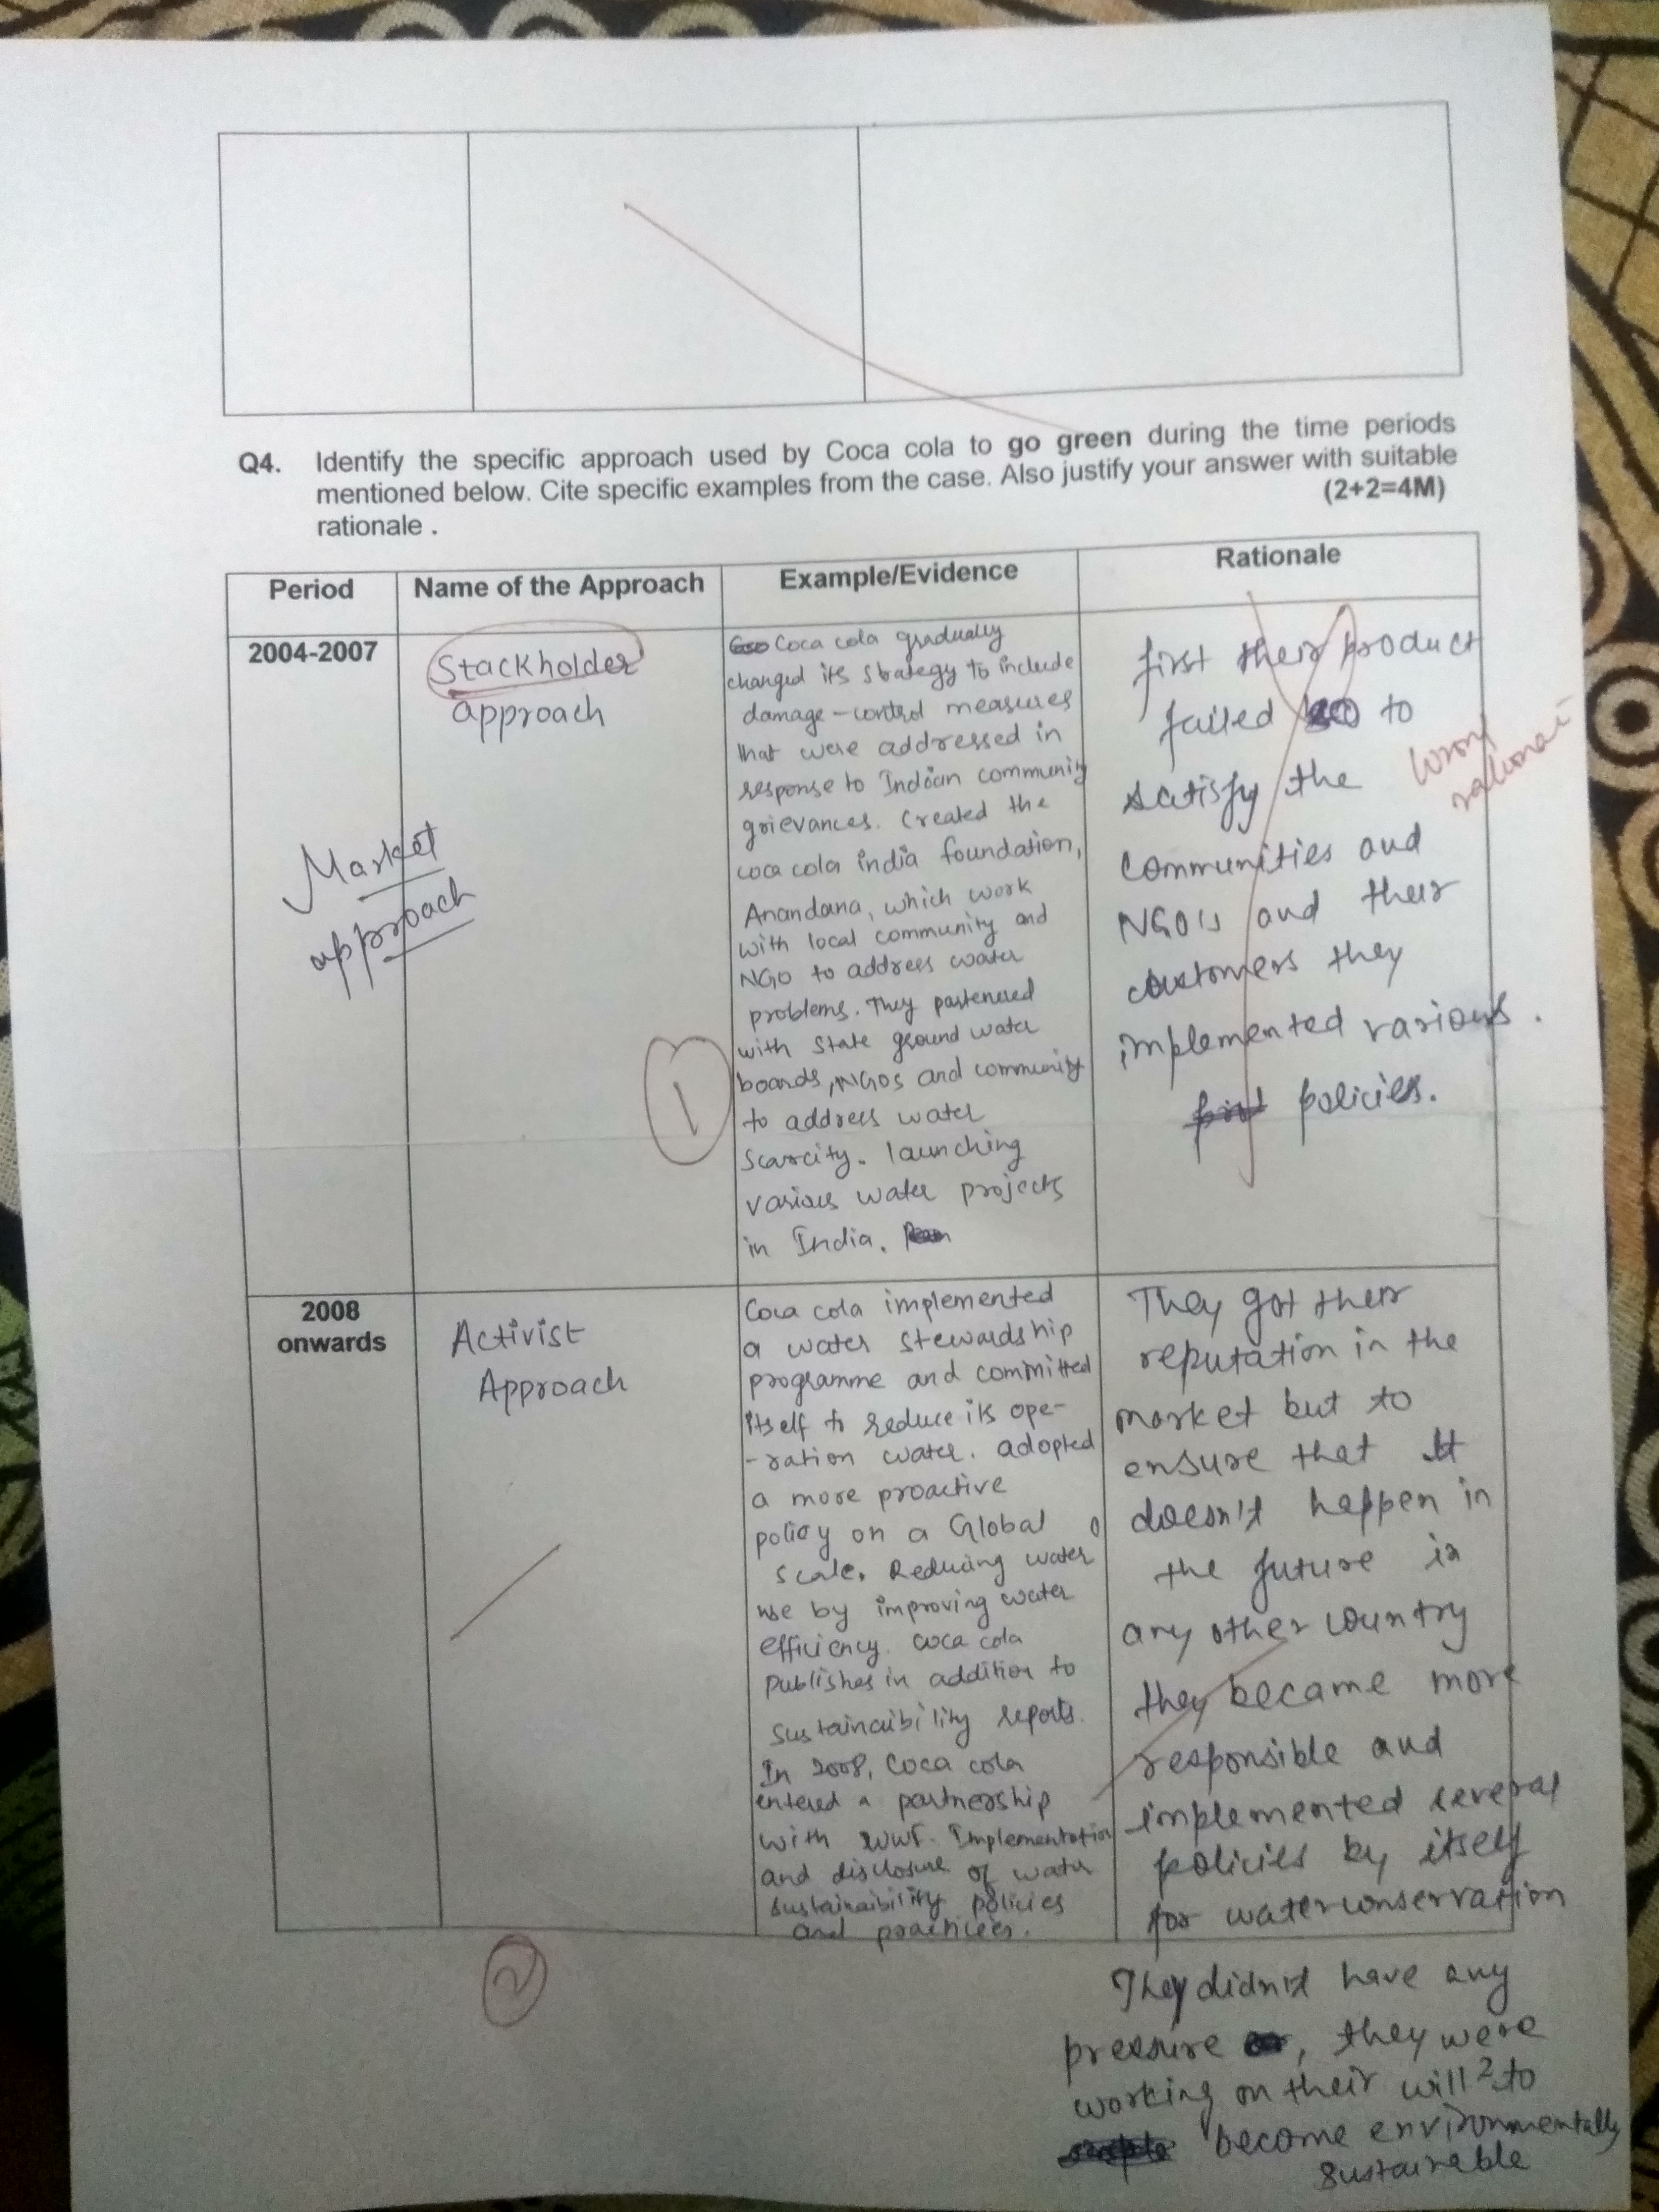 Q4. Identify the specific approach used by Coca cola to go green during the time periods
mentioned below. Cite specific examples from the case. Also justify your answer with suitable
rationale .
(2+2=4M)
Period
Name of the Approach
Example/Evidence
Rationale
2004-2007
Stackholder
approach
Market
approach
Coca cola gradually
changed its strategy to include
damage-control measures
that were addressed in
response to Indian community
grievances. Created the
coca cola india foundation,
Anandana, which work
with local community and
NGO to address water
problems. They partenered
with state ground water
boards, NGOs and community
to address water
scarcity. launching
various water projects
in India.
1
first their product
failed to
satisfy the
communities and
NGO's and their
customers they
implemented various
policies.
wrong
2008
onwards
Activist
Approach
Coca cola implemented
a water stewardship
programme and committed
itself to reduce its ope-
-ration water. adopted
a more proactive
policy on a Global
scale. Reducing water
use by improving water
efficiency. coca cola
Publishes in addition to
sustainaibility reports.
In 2008, Coca cola
entered a partnership
with WWF. Implementation
and disclosure of water
sustainaibility policies
and practices.
They got their
reputation in the
market but to
ensure that it
doesn't happen in
the future in
any other country
they became more
responsible and
implemented several
policies by itself
for water conservation
2
They didn't have any
pressure , they were
working on their will to
become environmentally
sustainable